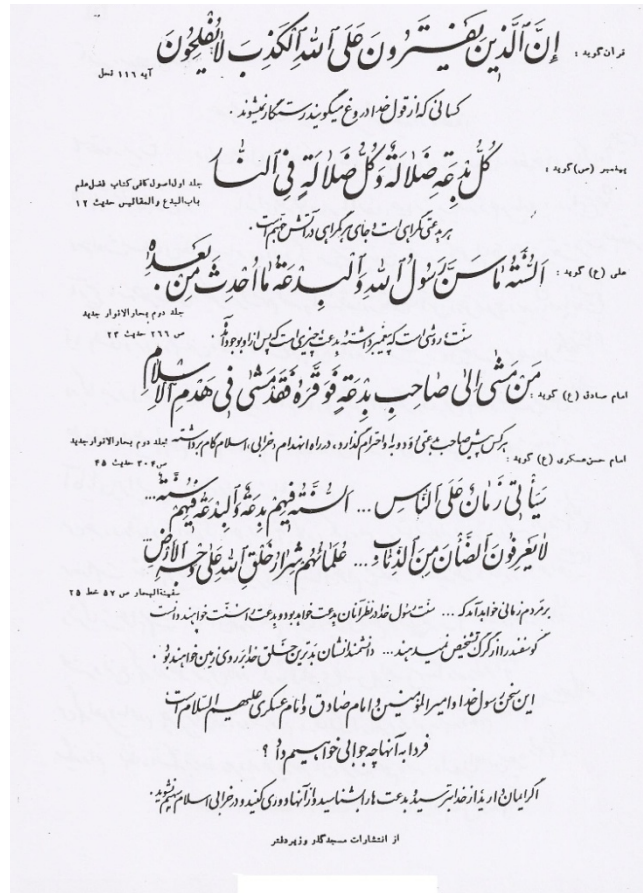 قرآن گوید : إِنَّ ٱلَّذِینَ یَفْتَرُونَ عَلَی ٱللهِ ٱلْکَذِبَ لَا یُفْلِحُونَ
آیه ۱۱۶ نحل
کسانی که از قول خدا دروغ میگویند رستگار نمیشوند .
پیغمبر (ص) گوید : کُلُّ بِدْعَةٍ ضَلَالَةٌ وَ کُلُّ ضَلَالَةٍ فِی ٱلنَّار
جلد اول اصول کافی کتاب فضل علم
باب البدع والمقالیس حدیث ۱۲
هر بدعتی گمراهی است و جای هر گمراهی در آتش جهنم است .
علی (ع) گوید : اَلسُّنَّةُ مَا سَنَّ رَسُولُ ٱللهِ وَ ٱلْبِدْعَةُ مَا اُحْدِثَ مِنْ بَعْدِهِ
جلد دوم بحارالانوار جدید
ص ۲۶۶ حدیث ۲۳
سنت روشی است که پیغمبر داشته و بدعت چیزی است که پس از او بوجود آمد .
امام صادق (ع) گوید : مَنْ مَشٰی اِلٰی صَاحِبِ بِدْعَةٍ فَوَقَّرَهُ فَقَدْ مَشٰی فِی هَدْمِ الْاِسْلَامِ
هرکس پیش صاحب بدعتی رود و به او احترام گذارد ، در راه انهدام و خرابی ، اسلام گام برداشته
جلد دوم بحارالانوار جدید
ص ۳۰۴ حدیث ۴۵
امام حسن عسکری (ع) گوید :
سَیَأْتِی زَمَانٌ عَلَی النَّاسِ ... اَلسُّنَّةُ فِیهِمْ بِدْعَةٌ وَ ٱلْبِدْعَةُ فِیهِمْ سُنَّةٌ ...
لَا یَعْرِفُونَ ٱلضَّأْنَ مِنَ ٱلذِّئَابِ ... عُلَمَائُهُمْ شِرَارُ خَلْقِ ٱللهِ عَلٰی وَجْهِ ٱلْاَرْضِ
سفینةالبحار ص ۵۷ خط ۲۵
بر مردم زمانی خواهد آمد که ... سنت رسول خدا در نظر آنان بدعت خواهد بود و بدعت را سنت خواهند دانست
گوسفند را از گرگ تشخیص نمیدهند ... دانشمندانشان بدترین خلق خدا بر روی زمین خواهند بود .
این سخن رسول خدا و امیرالمؤمنین و امام صادق و امام عسکری علیهم السلام است
فردا به آنها چه جوابی خواهیم داد ؟
اگر ایمان دارید از خدا بترسید و بدعت ها را بشناسید و از آنها دوری کنید و در خرابی اسلام سهیم نشوید .
از انتشارات مسجد گذر وزیر دفتر